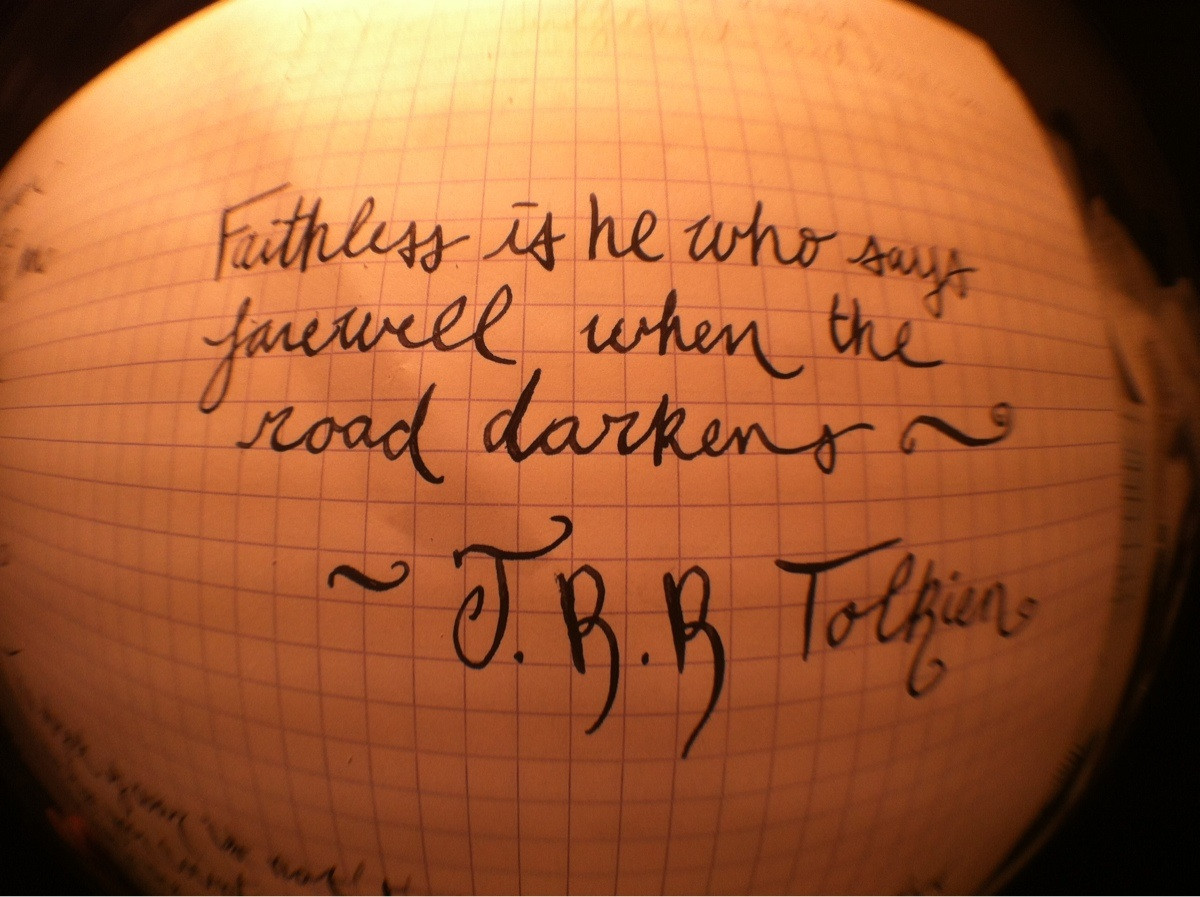 Faithless is he who says
farewell when the
road darkens ~
~ J.R.R Tolkien